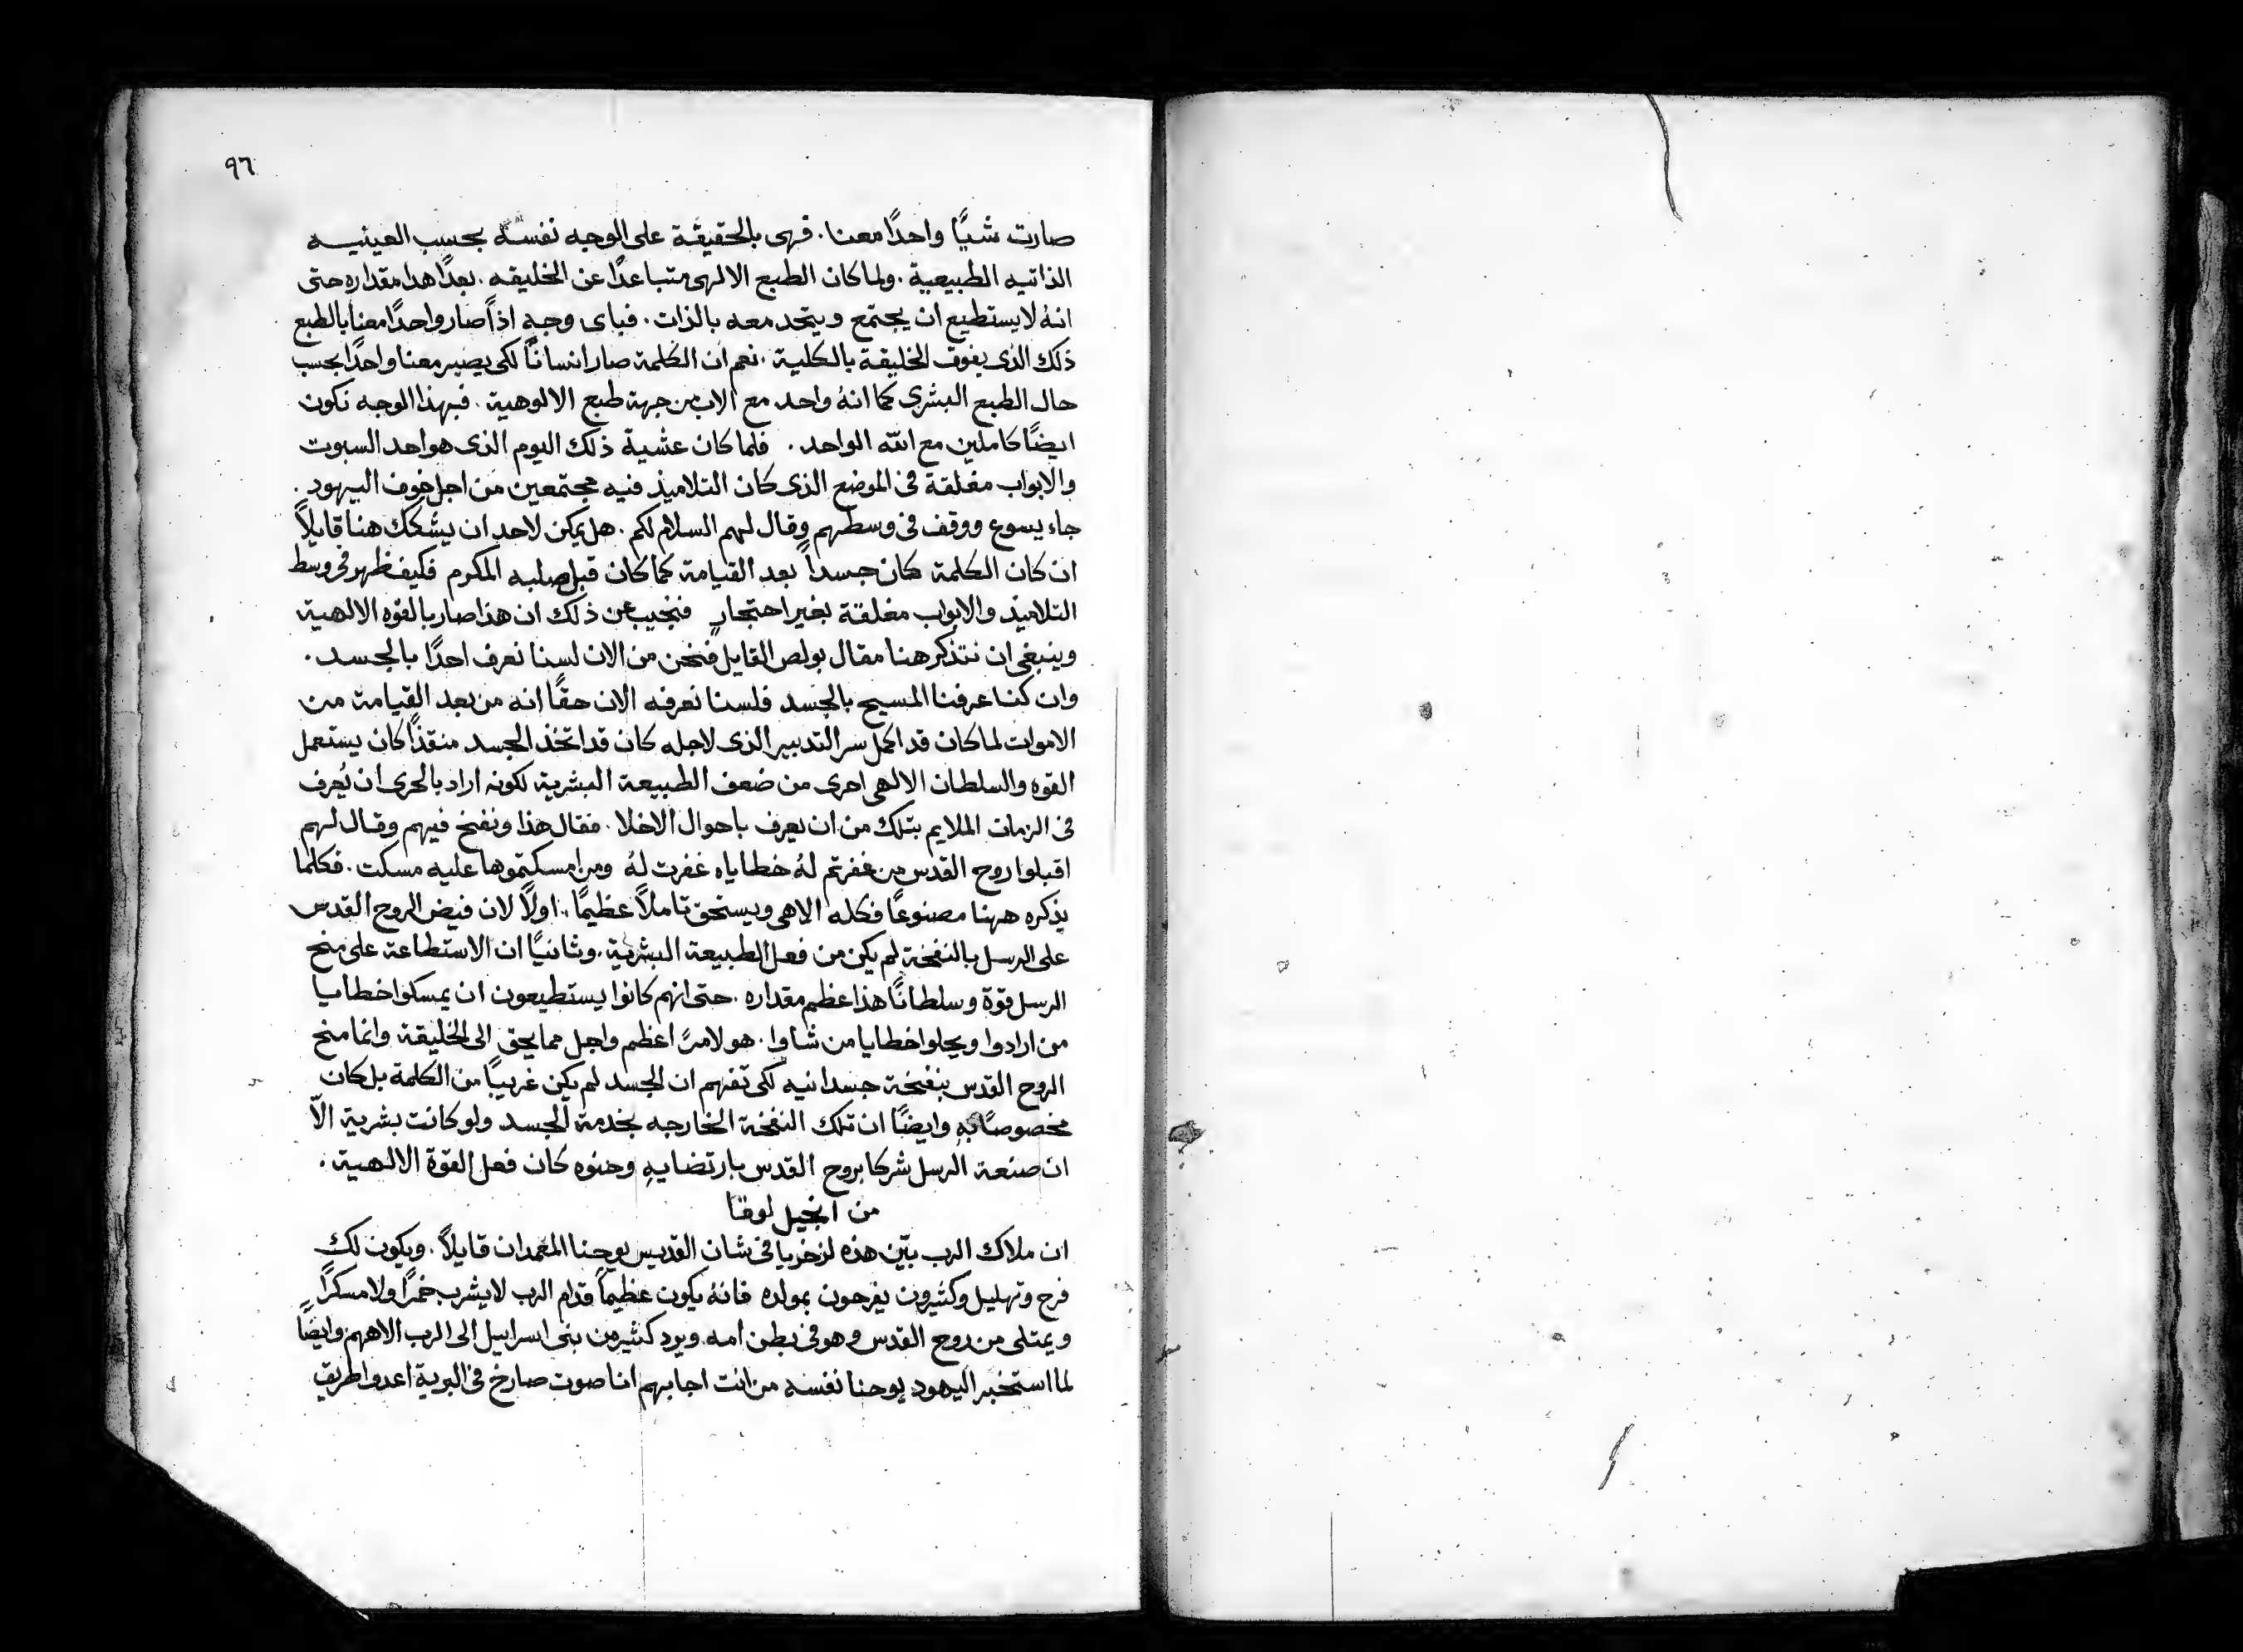 ٩٦
صارت شيًا واحدًا معنا. فهى بالحقيقة على الوجه نفسه بحسب العينيـه
الذاتيه الطبيعية. ولما كان الطبع الالهى متباعدًا عن الخليقه. بعدًا هدا مقداره حتى
انهُ لا يستطيع ان يجتمع ويتحد معه بالذات. فباى وجهٍ اذاً صار واحدًا معنا بالطبع
ذلك الذى يفوق الخليقة بالكلية. نعم ان الكلمة صار انسانًا لكى يصير معنا واحدًا بحسب
حال الطبع البشرى كما انهُ واحد مع الاب من جهة طبع الالوهية. فبهذا الوجه نكون
ايضًا كاملين مع الله الواحد. فلما كان عشية ذلك اليوم الذى هو احد السبوت
والابواب مغلقة فى الموضع الذى كان التلاميذ فيه مجتمعين من اجل خوف اليهود.
جاء يسوع ووقف فى وسطهم وقال لهم السلام لكم. هل يمكن لاحد ان يشكك هنا قايلاً
ان كان الكلمة كان جسداً بعد القيامة كما كان قبل صلبه المكرم فكيف ظهر فى وسط
التلاميذ والابواب مغلقة بغير احتجارٍ فنجيب عن ذلك ان هذا صار بالقوه الالهية
وينبغى ان نتذكر هنا مقال بولص القايل فنحن من الان لسنا نعرف احدًا بالجسد.
وان كنا عرفنا المسيح بالجسد فلسنا نعرفه الان حقًا انه من بعد القيامة من
الاموات لما كان قد اكمل سر التدبير الذى لاجله كان قد اتخذ الجسد منقذًا كان يستعمل
القوه والسلطان الالهى احرى من ضعف الطبيعة البشرية لكونه اراد بالحرى ان يُعرف
فى الزمان الملايم بتلك من ان يعرف باحوال الاخلا. فقال هذا ونفخ فيهم وقال لهم
اقبلوا روح القدس من غفرتم لهُ خطاياه غفرت لهُ ومن امسكتموها عليه مسكت. فكلما
يذكره ههنا مصنوعًا فكله الاهى ويستحق تاملاً عظيمًا. اولاً لان فيض الروح القدس
على الرسل بالنفخة لم يكن من فعل الطبيعة البشرية. وثانيًا ان الاستطاعة على منح
الرسل قوة وسلطانًا هذا عظم مقداره. حتى انهم كانوا يستطيعون ان يمسكوا خطايا
من ارادوا ويحلوا خطايا من شاوا. هو لامرٌ اعظم واجل مما يحق الى الخليقة وانما منح
الروح القدس بنفخة جسدانيه لكى تفهم ان الجسد لم يكن غريبًا من الكلمة بل كان
مخصوصًا به وايضًا ان تلك النفخة الخارجه بخدمة الجسد ولو كانت بشرية الاّ
ان صنعة الرسل شركا بروح القدس بارتضايهِ وحنوه كان فعل القوة الالهية.
من انجيل لوقا
ان ملاك الرب بيّن هذه لزخريا فى شان القديس يوحنا المعمدان قايلاً. ويكون لك
فرح وتهليل وكثيرون يفرحون بمولده فانهُ يكون عظيماً قدام الرب لا يشرب خمرًا ولا مسكرًا
ويمتلى من روح القدس وهو فى بطن امه ويرد كثير من بنى اسراييل الى الرب الاههم وايضًا
لما استخبر اليهود يوحنا نفسه من انت اجابهم انا صوت صارخ فى البرية اعدوا طريق